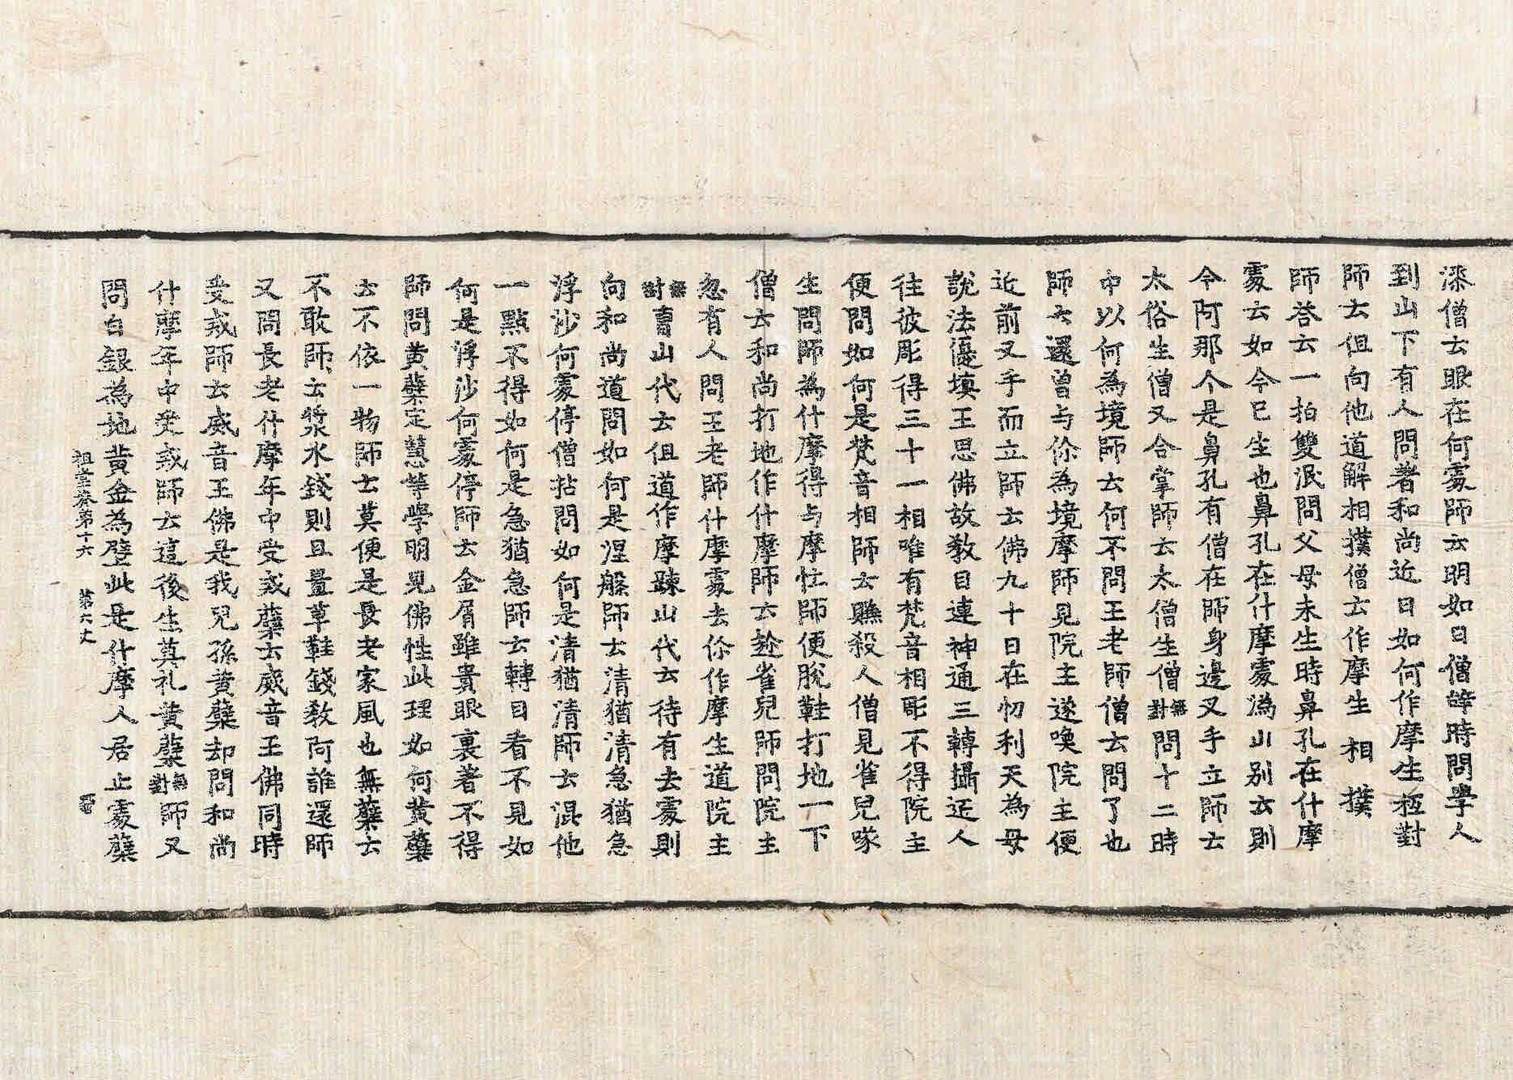 漆僧云眼在何處師云明如日僧辞時問學人
到山下有人問著和尚近日如何作摩生祗對
師云但向他道解相撲僧云作摩生相撲
師荅云一拍雙泯問父母未生時鼻孔在什摩
處云如今已生也鼻孔在什摩處溈山別云則
今阿那个是鼻孔有僧在師身邊叉手立師云
太俗生僧又合掌師云太僧生僧無對問十二時
中以何為境師云何不問王老師僧云問了也
師云還曾与你為境摩師見院主遂喚院主便
近前叉手而立師云佛九十日在忉利天為母
說法優填王思佛故教目連神通三轉攝迋人
往彼彫得三十一相唯有梵音相彫不得院主
便問如何是梵音相師云賺殺人僧見雀兒啄
生問師為什摩得与摩忙師便脫鞋打地一下
僧云和尚打地作什摩師云趂雀兒師問院主
忽有人問王老師什摩處去你作摩生道院主
無對賣山代云但道作摩踈山代云待有去處則
向和尚道問如何是涅槃師云清猶清急猶急
浮沙何處停僧拈問如何是清猶清師云混他
一點不得如何是急猶急師云轉目看不見如
何是浮沙何處停師云金屑雖貴眼裏著不得
師問黃蘗定慧等學明見佛性此理如何黃蘗
云不依一物師云莫便是長老家風也無蘗云
不敢師云漿水錢則且置草鞋錢教阿誰還師
又問長老什摩年中受戒蘗云威音王佛同時
受戒師云威音王佛是我兒孫黃蘗却問和尚
什摩年中受戒師云這後生莫礼黃蘗無對師又
問白銀為地黃金為壁此是什摩人居止處蘗
祖堂卷第十六 第六丈